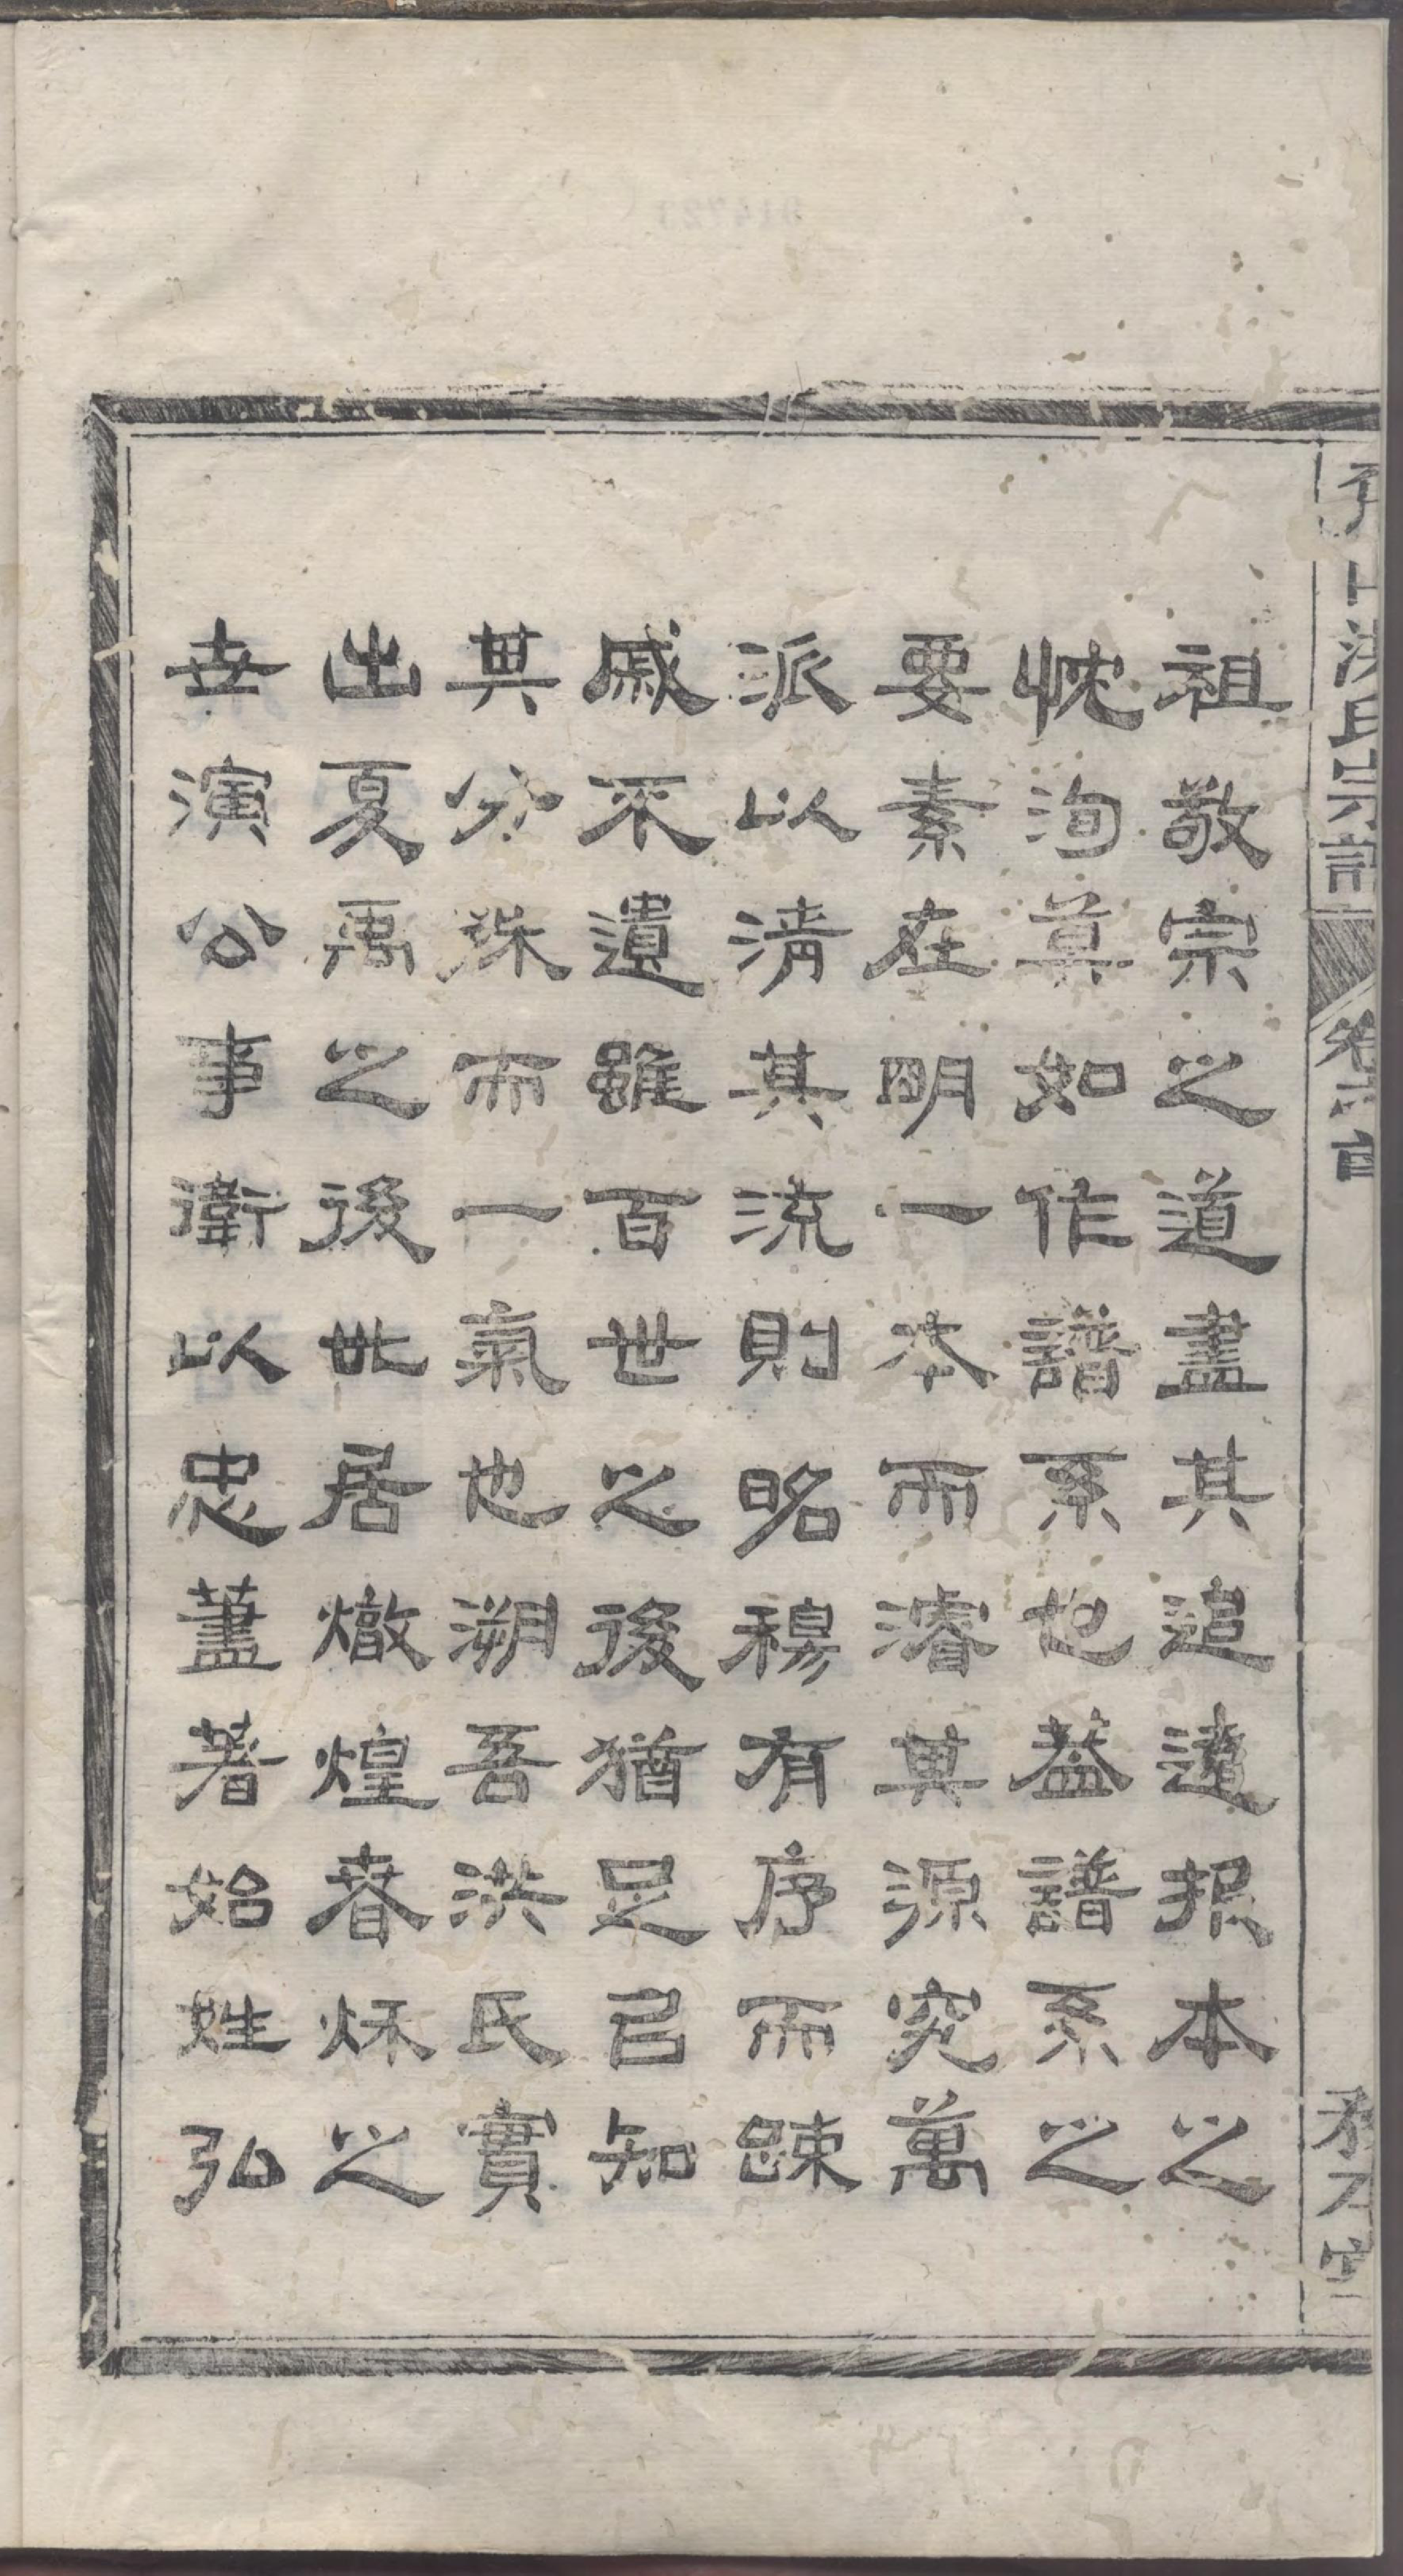 洪氏宗譜 卷首
祖敬宗之道盡其追遠报本之
忱洵莫如作譜系也蓋譜系之
要素在明一本而濬其源究萬
派以清其流則昭穆有序而踈
戚不遺雖百世之後猶足㠯知
其分殊而一氣也溯吾洪氏實
出夏禹之後世居燉煌春秌之
世演公事衛以忠藎著始姓弘